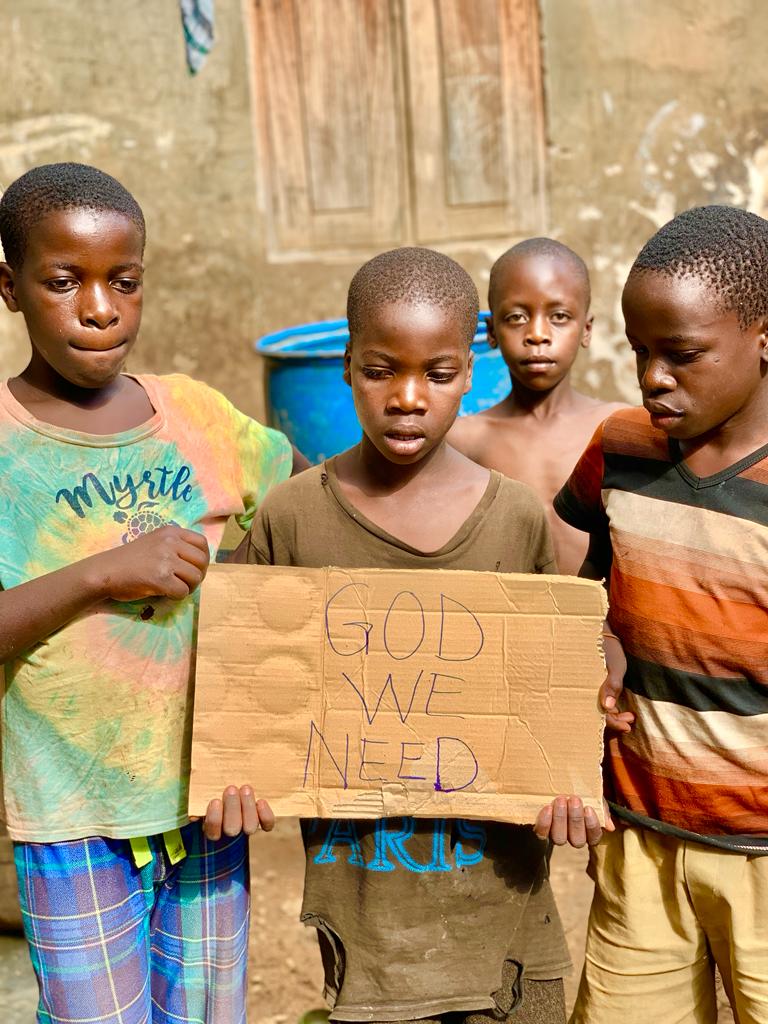 Myrtle
GOD
WE
NEED
PARIS